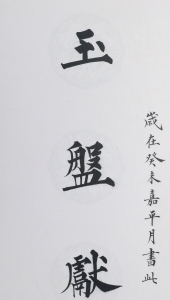 歲在癸未嘉平月書此
玉盤獻